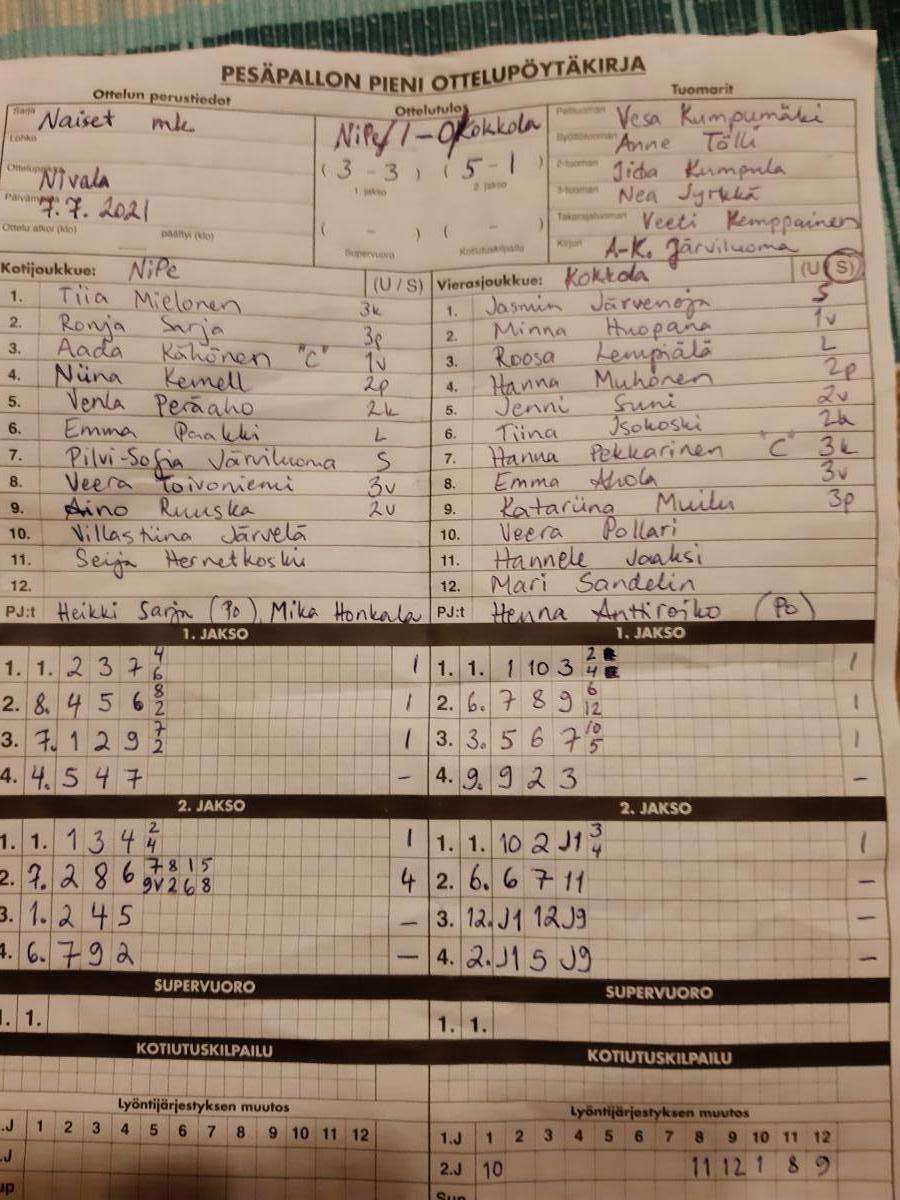 PESÄPALLON PIENI OTTELUPÖYTÄKIRJA
Ottelun perustiedot
Sarja Naiset mk.
Lohko
Nivala
7.7. 2021
Ottelu alkoi (klo) päättyi (klo)
Ottelutulos
NiPe 1-0 Kokkola
( 3 - 3 ) ( 5 - 1 )
1. jakso 2. jakso
( - ) ( - )
Supervuoro Kotiutuskilpailu
Tuomarit
Pelituomari Vesa Kumpumäki
Syöttötuomari Anne Tölli
2-tuomari Iida Kumpula
3-tuomari Nea Jyrkkä
Takarajatuomari Veeti Kemppainen
Kirjuri A-K. Järviluoma
Kotijoukkue: NiPe (U / S)
1. Tiia Mielonen 3k
2. Ronja Sarja 3p
3. Aada Kähönen "C" 1v
4. Niina Kemell 2p
5. Venla Peräaho 2k
6. Emma Paakki L
7. Pilvi-Sofia Järviluoma S
8. Veera Toivoniemi 3v
9. Aino Ruuska 2v
10. Villastiina Järvelä
11. Seija Hernetkoski
12.
PJ:t Heikki Sarja (Po), Mika Honkala
Vierasjoukkue: Kokkola (U S)
1. Jasmin Järvenoja S
2. Minna Huopana 1v
3. Roosa Lempiälä L
4. Hanna Muhonen 2p
5. Jenni Suni 2v
6. Tiina Isokoski 2k
7. Hanna Pekkarinen "C" 3k
8. Emma Ahola 3v
9. Katariina Muilu 3p
10. Veera Pollari
11. Hannele Jaaksi
12. Mari Sandelin
PJ:t Henna Anttiroiko (Po)
1. JAKSO
1. 1. 2 3 7 4 6 1
2. 8. 4 5 6 8 2 1
3. 7. 1 2 9 7 2 1
4. 4. 5 4 7 -
1. JAKSO
1. 1. 1 10 3 2 4 1
2. 6. 7 8 9 6 12 1
3. 3. 5 6 7 10 5 1
4. 9. 9 2 3 -
2. JAKSO
1. 1. 1 3 4 2 4 1
2. 7. 2 8 6 7 8 1 5 9v 2 6 8 4
3. 1. 2 4 5 -
4. 6. 7 9 2 -
2. JAKSO
1. 1. 10 2 J1 3 4 1
2. 6. 6 7 11 -
3. 12. J1 12 J9 -
4. 2. J1 5 J9 -
SUPERVUORO
1. 1.
SUPERVUORO
1. 1.
KOTIUTUSKILPAILU
KOTIUTUSKILPAILU
Lyöntijärjestyksen muutos
.J 1 2 3 4 5 6 7 8 9 10 11 12
.J
up
Lyöntijärjestyksen muutos
1.J 1 2 3 4 5 6 7 8 9 10 11 12
2.J 10 11 12 1 8 9
Sup